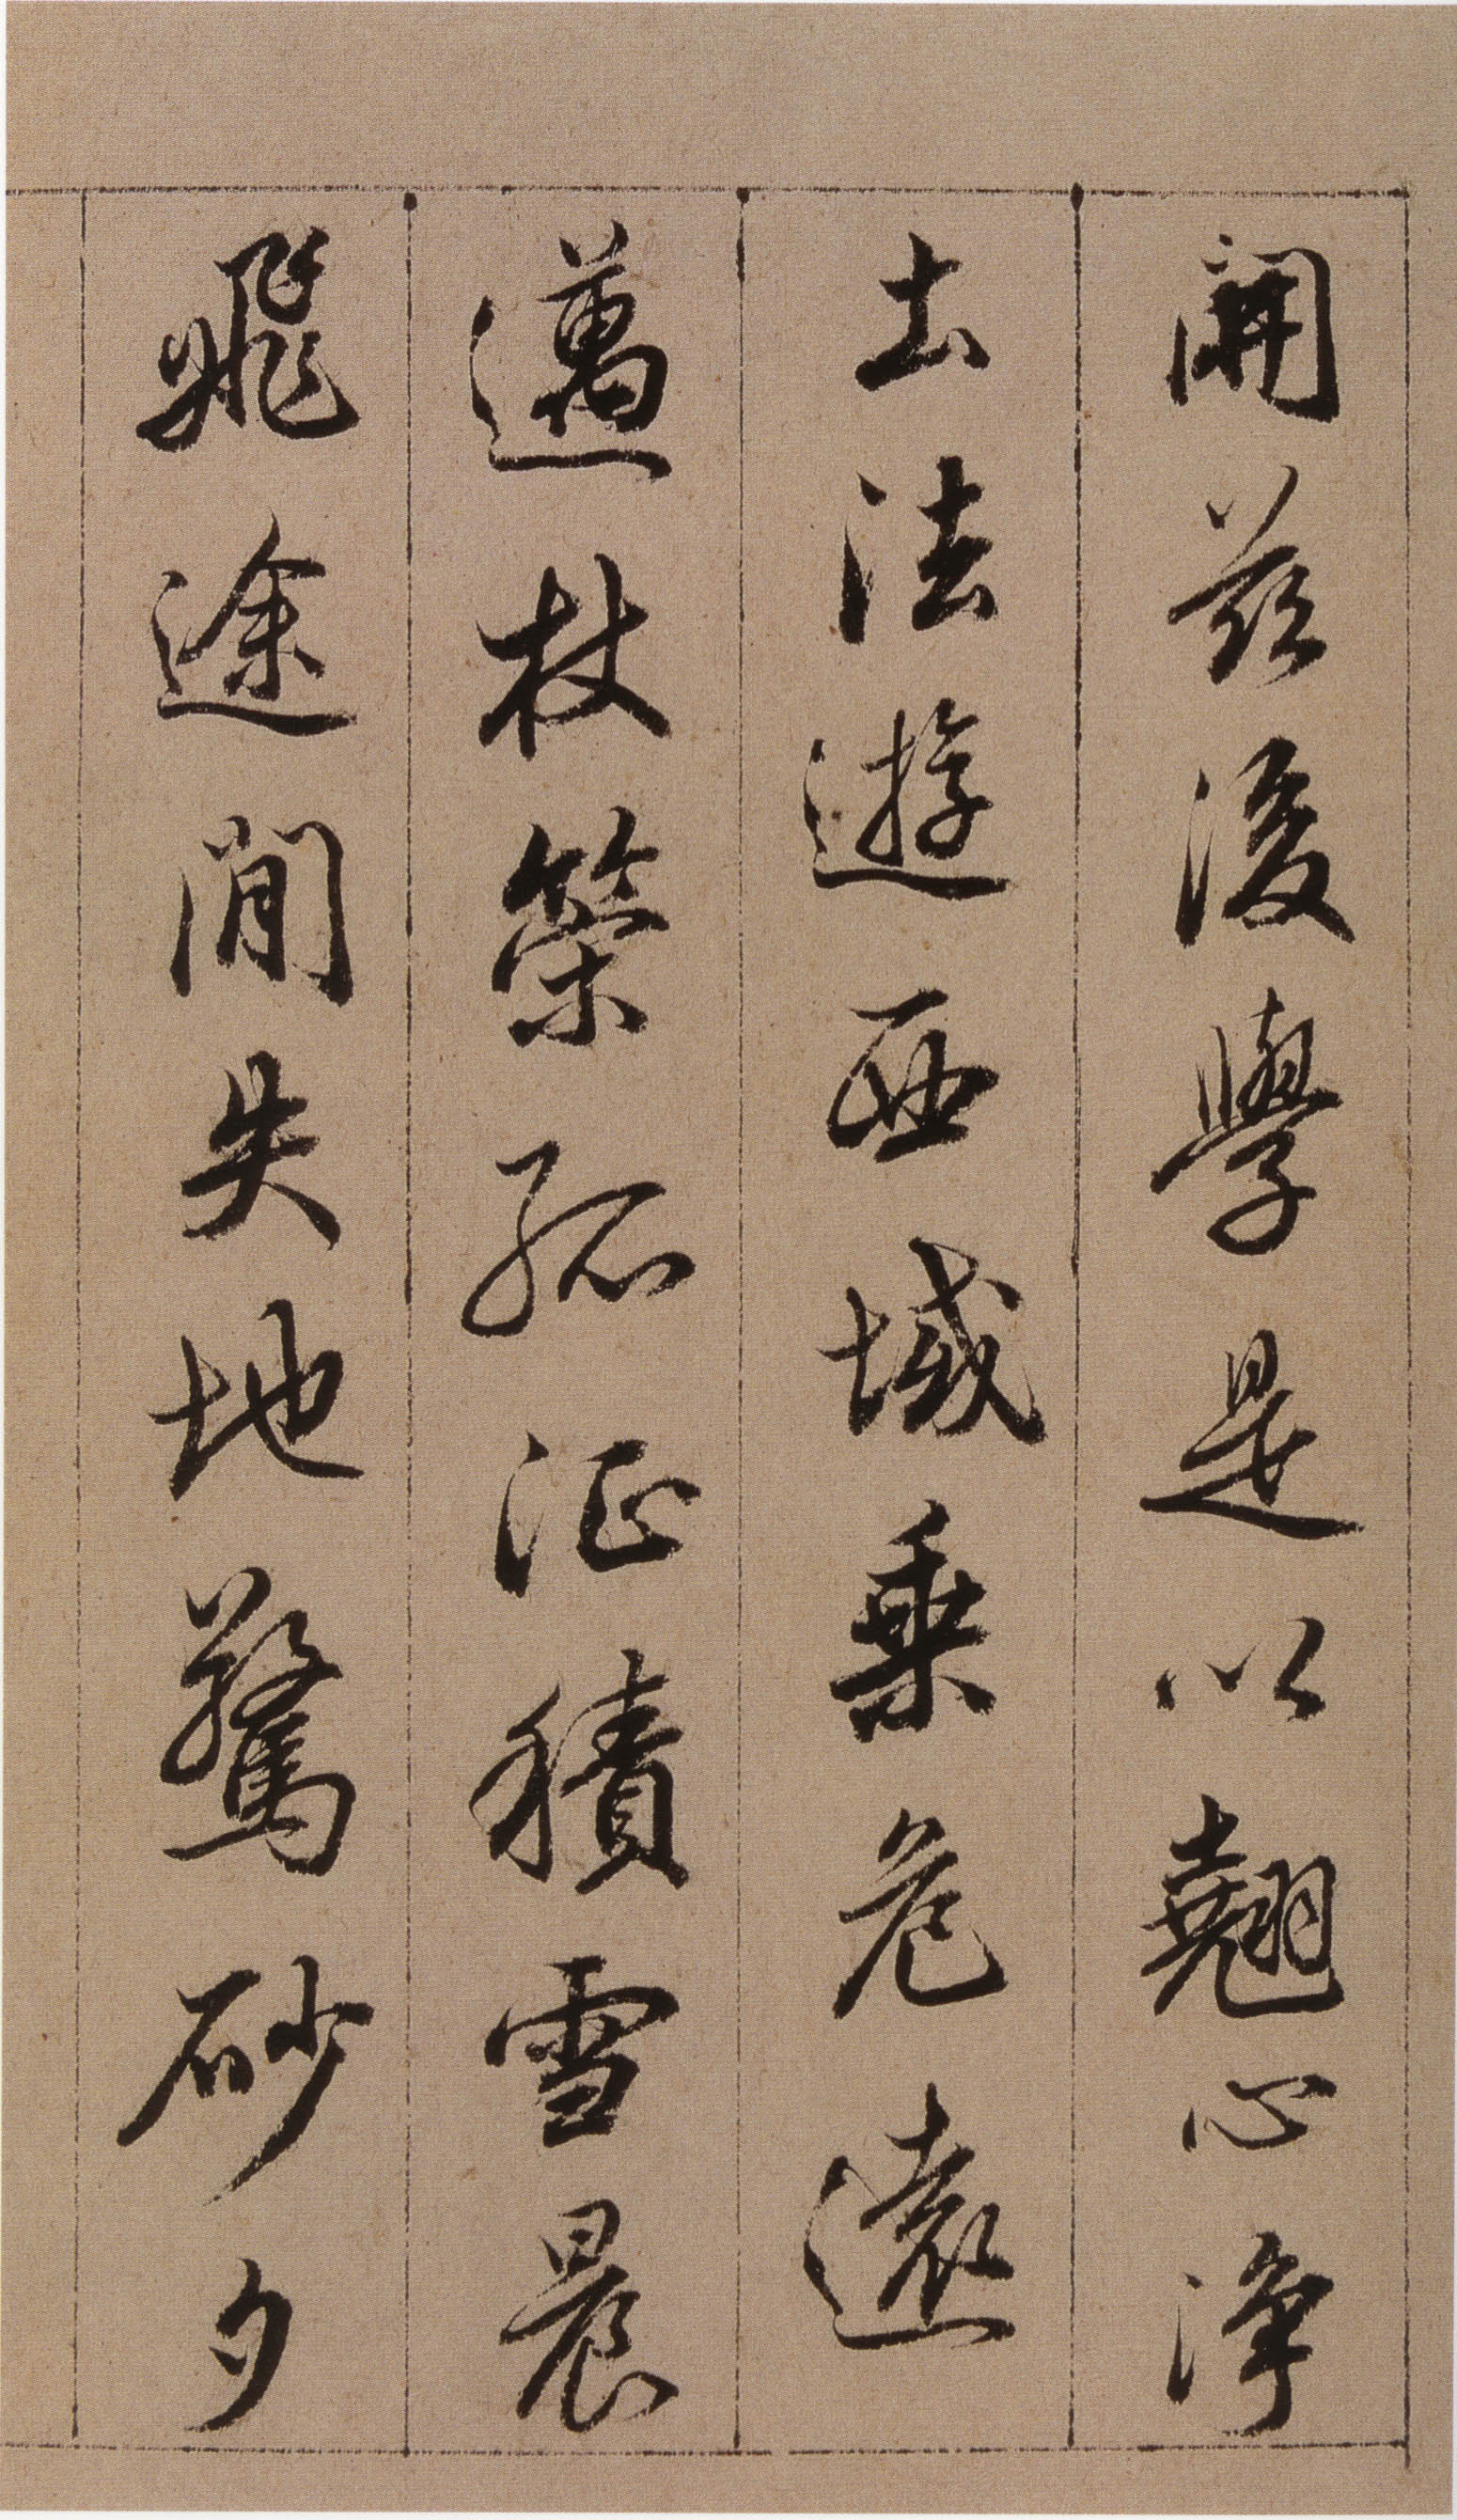 開茲後學是以翹心淨
土法遊西域乗危遠
邁杖策孤征積雪晨
飛途間失地驚砂夕